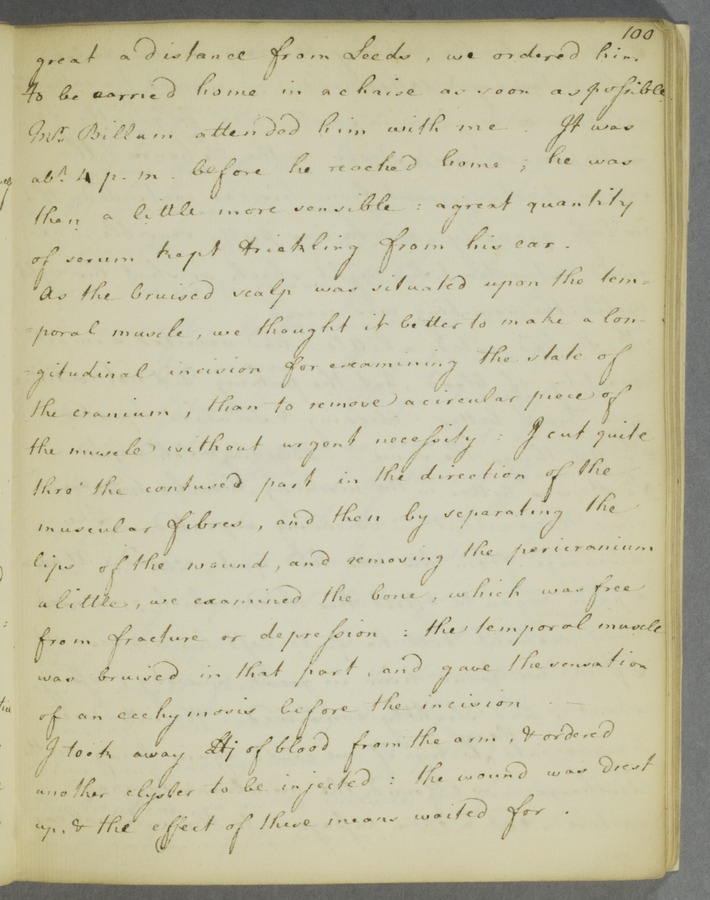 100
great a distance from Leeds, we ordered him
to be carried home in a chaise as soon as poſsible.
Mr. Billam attended him with me. It was
abt. 4 p.m. before he reached home; he was
then a little more sensible: a great quantity
of serum kept trickling from his ear.
As the bruised scalp was situated upon the tem=
=poral muscle, we thought it better to make a lon-
=gitudinal incision for examining the state of
the cranium, than to remove a circular piece of
the muscle without urgent neceſsity: I cut quite
thro' the contused part in the direction of the
muscular fibres, and then by separating the
lips of the wound, and removing the pericranium
a little, we examined the bone, which was free
from fracture or depreſsion: the temporal muscle
was bruised in that part, and gave the sensation
of an ecchymosis before the incision
I took away ℔j of blood from the arm, & ordered
another clyster to be injected: the wound was drest
up. & the effect of these means waited for.